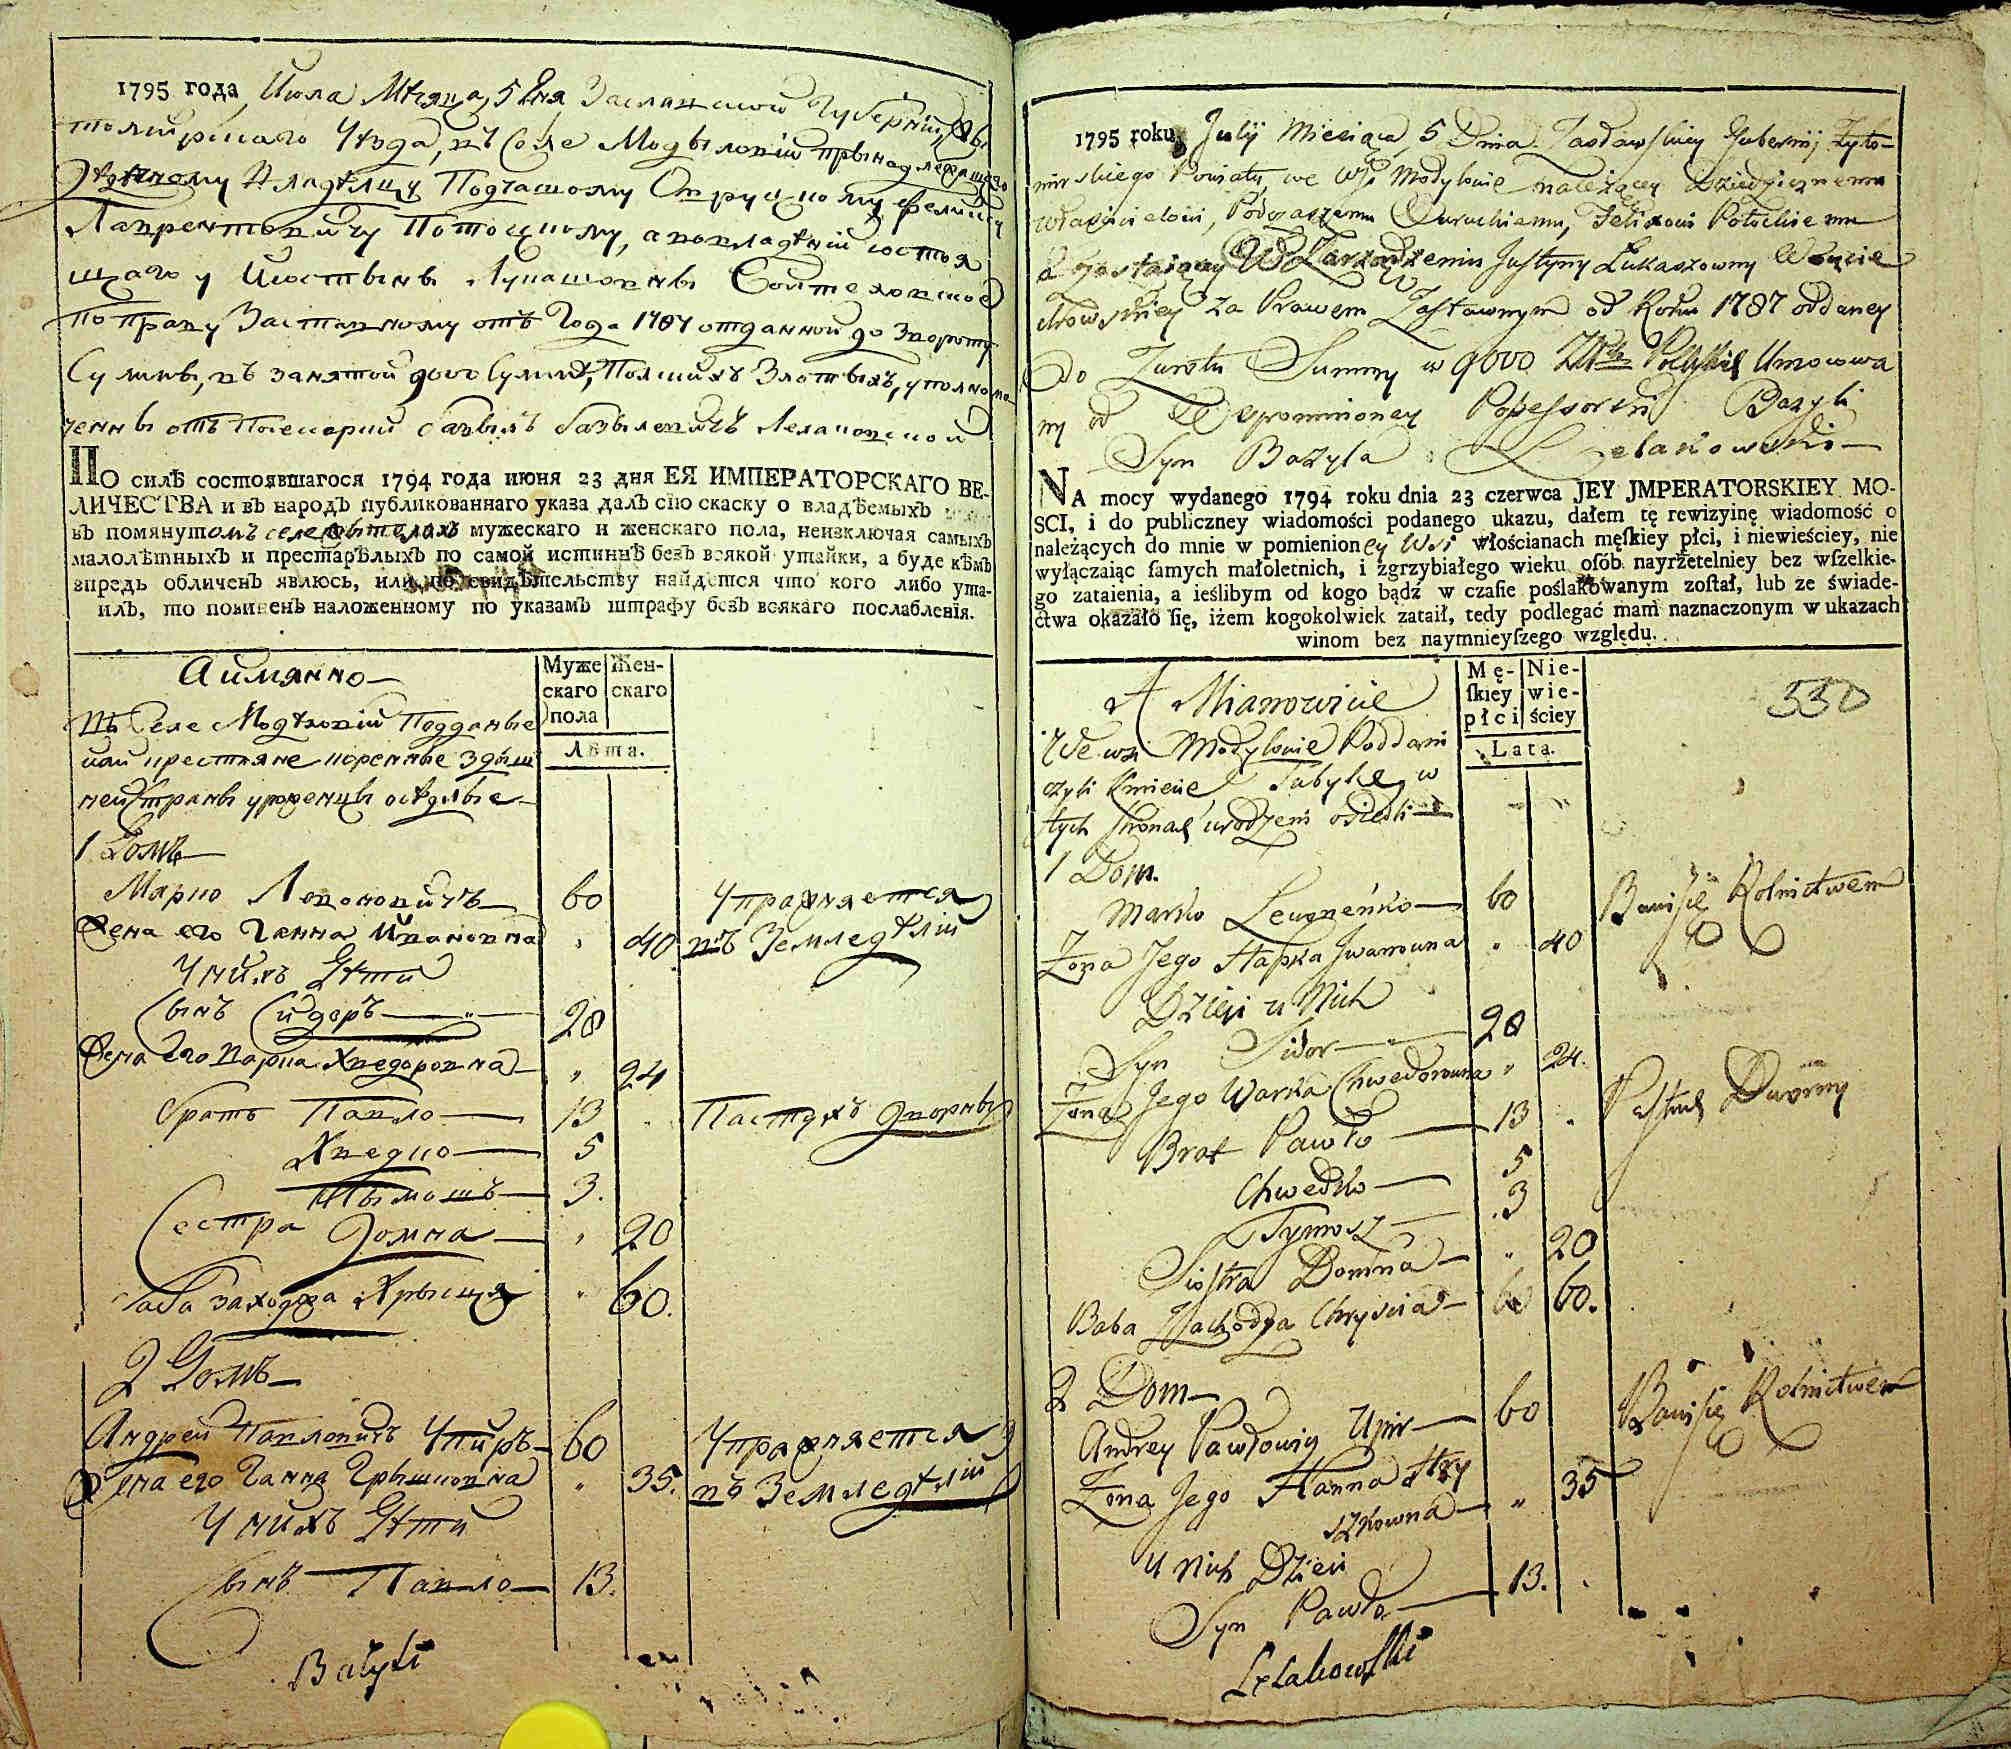 1795 года Июля Мѣсяца 5 Дня Заславской Губерніи Жы
томирскаго Уезда, въ Селе Модылювки прынадлежащаго
Дедичному Владѣлцу Подчашому Овруцкому Феликсу
Лаврентовичу Потоцкому, а вовладѣніи состоя
щаго у Иостыны Лукашовны Войтеховской
По праву Заставному отъ Года 1787 отданной до Звороту
Сумы, въ занятой 9000 Сумѣ, Польскихъ Злотыхъ, уполномо
ченны отъ Посесорки Базыль Базылевичъ Лелаковской
ПО силѣ состоявшагося 1794 года июня 23 дня ЕЯ ИМПЕРАТОРСКАГО ВЕ-
ЛИЧЕСТВА и въ народъ публикованнаго указа далъ сію скаску о владѣемыхъ
въ помянутомъ селе мужескаго и женскаго пола, неизключая самыхъ
малолѣтныхъ и престарѣлыхъ по самой истиннѣ безъ всякой утайки, а буде кѣмъ
впредь обличенъ явлюсь, или по свидѣтельству найдется что кого либо ута-
илъ, то повиненъ наложенному по указамъ штрафу безъ всякаго послабленія.
А имянно
Муже
скаго
пола
Жен-
скаго
Лѣта.
Въ Селе Подданые
или крестяне коренные здѣш
ней страны уроженцы оседлые
1 Домъ
Марко 60 Упражняется
Жена его Ганна Ивановна " 40 въ Земледѣлій
У нихъ Дѣти
Сынъ Сидоръ 28
Жена его Варка Хведоровна " 24
братъ Павло 13 Пастухъ дворны
Хведко 5
Тымошъ 3.
Сестра Домна " 20
баба заходжа Хрысця " 60.
2 Домъ
Андрей Павловичъ Упиръ 60 Упражняется
Жена его Ганна Грышковна " 35. въ Земледѣлій
У нихъ Дѣти
Сынъ Павло 13.
Bazyli
1795 roku July Miesiąca 5 Dnia Zasławskiey Gubernij Zyto-
mirskiego Powiatu we Wsi Modylowie należącey Dziedzicznemu
Właścicielowi, Podczaszemu Owruckiemu, Felixowi Potockiemu
a zostaiącey W Zarządzeniu Justyny Łukaszowny Woycie
chowskiey za Prawem Zastawnym od Roku 1787 oddaney
do Zwrotu Summy w 9000 Złotych Polskich Umocowa
ny od Wspomnioney Possessorki Bazyli
Syn Bazyla Lelakowski
NA mocy wydanego 1794 roku dnia 23 czerwca JEY JMPERATORSKIEY MO-
SCI, i do publiczney wiadomości podanego ukazu, dałem tę rewizyinę wiadomość o
należących do mnie w pomienioney Wsi włościanach męſkiey płci, i niewieściey, nie
wyłączaiąc ſamych małoletnich, i zgrzybiałego wieku oſób nayrzetelniey bez wſzelkie-
go zataienia, a ieślibym od kogo bądź w czaſie poślakowanym zoſtał, lub ze świade-
ctwa okazało ſię, iżem kogokolwiek zataił, tedy podlegać mam naznaczonym w ukazach
winom bez naymnieyſzego względu.
A Mianowicie
Mę-
ſkiey
płci
Nie-
wie-
ściey
Lata.
550
We wsi Modylowie Poddani
czyli Kmiecie Tabyłce w
tych stronach urodzeni osiedli
1 Dom.
Marko 60 Bawi się Rolnictwem
Zona Jego Hapka Jwanowna " 40
Dzieci u Nich
Syn Sidor 28
Zona Jego Warka Chwedorowna " 24.
Brat Pawło 13 Pastuch Dworny
Chwedko 5
Tymosz 3
Siostra Domna " 20
Baba Zachodza Chryscia 60.
2 Dom
Andrey Pawłowicz Upir 60 Bawi się Rolnictwem
Zona Jego Hanna Hry
szkowna " 35
U Nich Dzieci
Syn Pawło 13.
Lelakowski